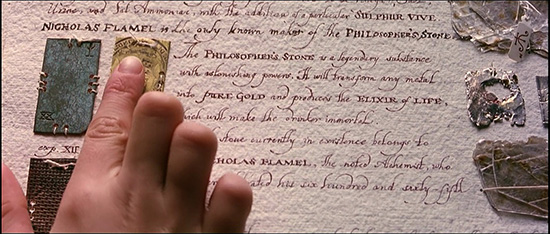 Urine, and Sal Ammoniac, with the addition of a particular SULPHUR VIVE.
NICHOLAS FLAMEL is the only known maker of the PHILOSOPHER'S STONE
The PHILOSOPHER'S STONE is a legendary substance
with astonishing powers. It will transform any metal
into PURE GOLD and produces the ELIXIR of LIFE,
which will make the drinker immortal.
stone currently in existence belongs to
corp. XII
NICHOLAS FLAMEL, the noted Alchemist, who
his six hundred and sixty fifth